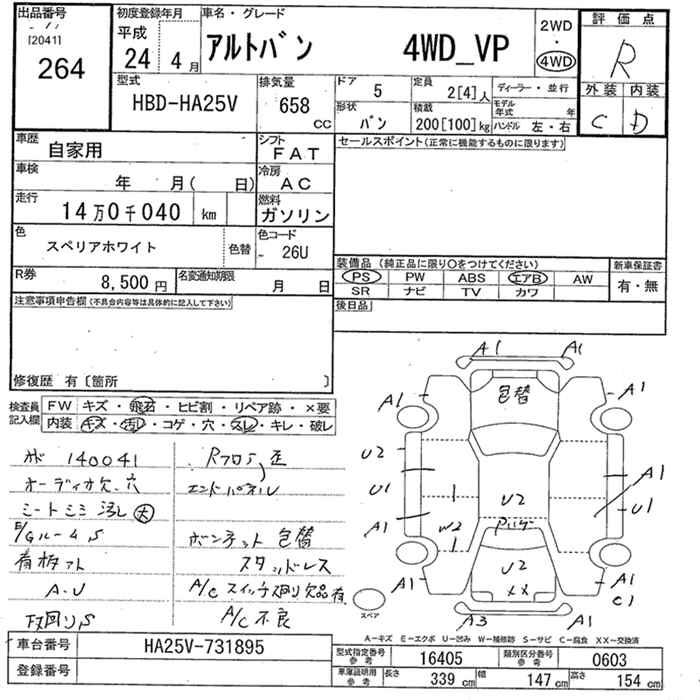 出品番号
[2041]
264
初度登録年月
平成
24年 4月
車名・グレード
アルトバン 4WD_VP
2WD
・
4WD
評価点
R
外装 内装
C D
型式
HBD-HA25V
排気量
658
CC
ドア
5
定員
2[4]人
ディーラー・並行
モデル年式 年
形状
バン
積載
200[100]kg
ハンドル 左・右
車歴
自家用
シフト
FAT
セールスポイント(正常に機能するものに限ります)
車検
年 月( 日)
冷房
AC
走行
14万0千040 km
燃料
ガソリン
色
スペリアホワイト
色替
色コード
- 26U
装備品 (純正品に限り○をつけてください)
PS PW ABS エアB AW
SR ナビ TV カワ
新車保証書
有・無
R券
8,500円
名変通知期限
月 日
後日品
注意事項申告欄(不具合内容等は具体的に記入して下さい)
修復歴 有〔箇所 〕
検査員記入欄
FW キズ・飛石・ヒビ割・リペア跡・×要
内装 キズ・汚レ・コゲ・穴・スレ・キレ・破レ
メーター 140041
オーディオ欠、穴
シートシミ 汚レ大
E/Gルーム S
看板アト
A.U
下廻りS
Rフロア
エンドパネル
ボンネット 色替
スタッドレス
A/Cスイッチ廻り欠品有
A/C不良
A1 A1
色替
A1 A1
U2
U1
A1
A1
U1
W2
U2
U2
XX
A1 A1
C1
A3 A1
スペア
A-キズ E-エクボ U-凹み W-補修跡 S-サビ C-腐食 XX-交換済
車台番号
HA25V-731895
登録番号
型式指定番号
参考
16405
類別区分番号
参考
0603
車庫証明用
参考
長さ
339cm
幅
147cm
高さ
154cm